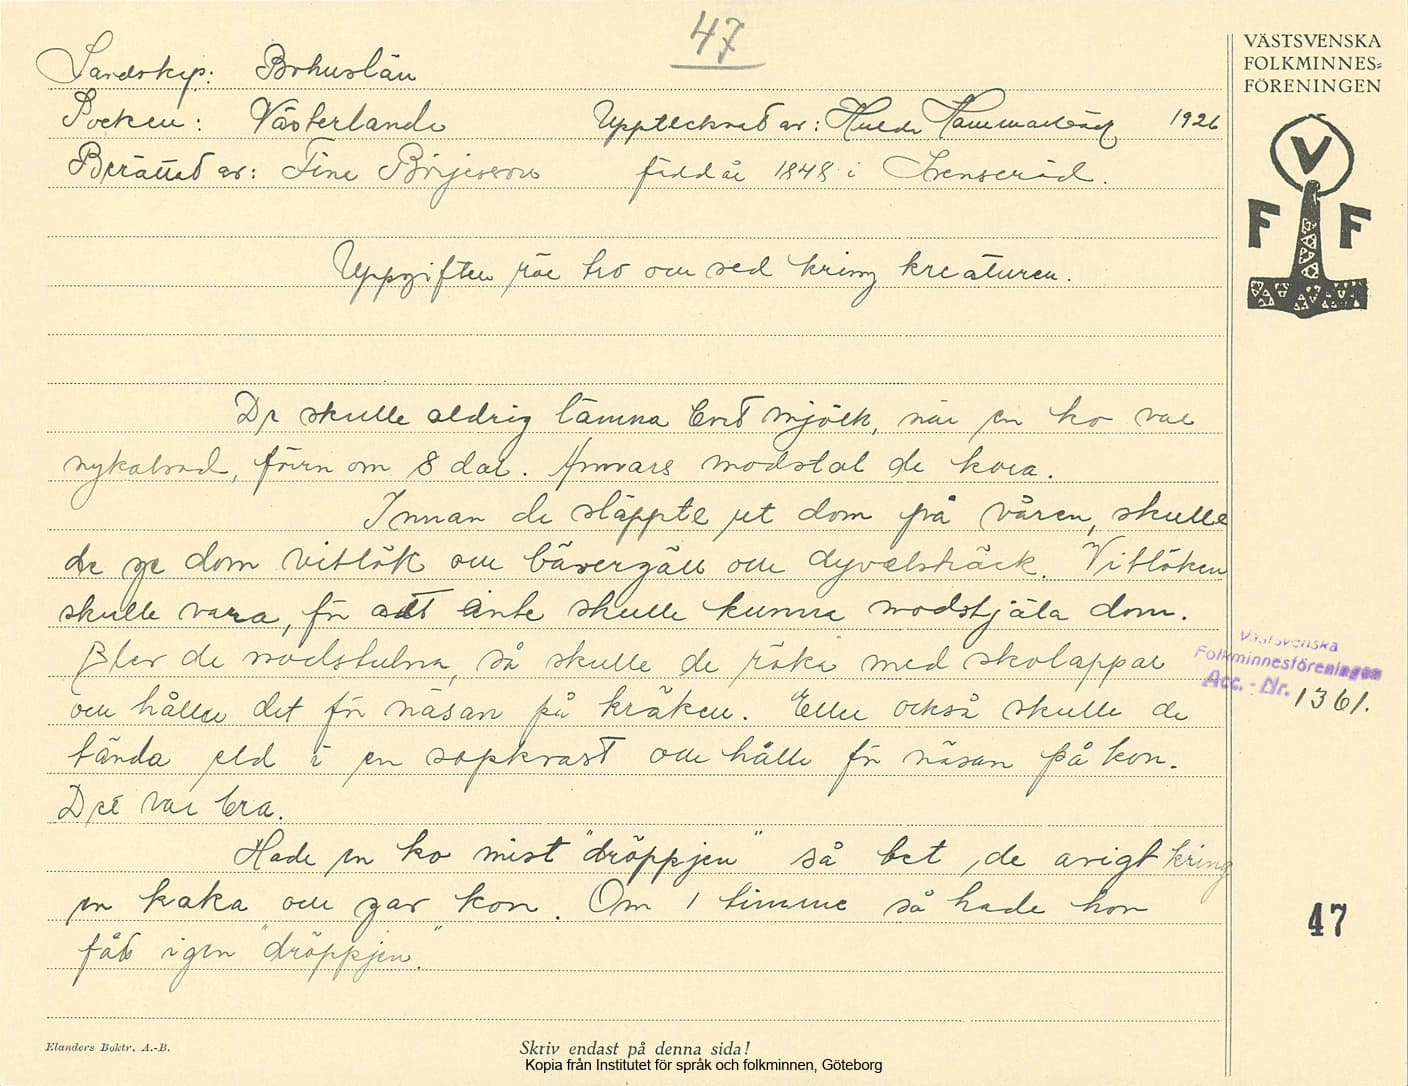 47
VÄSTSVENSKA
FOLKMINNES-
FÖRENINGEN
Landskap: Bohuslän
Socken: Västerlanda Upptecknat av: Hulda Hammarbäck 1926
Berättat av: Tina Börjesson född år 1848 i Svenseröd.
V
F F
Uppgifter rör tro och sed kring kreaturen.
De skulle aldrig lämna bort mjölk, när en ko var
nykalvad, förrn om 8 dar. Annars modstal de kora.
Innan de släppte ut dom på våren, skulle
de ge dom vitlök och bävergäll och dyvelsträck. Vitlöken
skulle vara, för att inte skulle kunna modstjäla dom.
Blev de modstulna, så skulle de röka med skolappar
och hålla det för näsan på kräken. Eller också skulle de
tända eld i en sopkvast och hålla för näsan på kon.
Det var bra.
Hade en ko mist "dröppjen" så bet de avigt kring
en kaka och gav kon. Om 1 timme så hade hon
fått igen "dröppjen".
Västsvenska
Folkminnesföreningen
Acc. - Nr. 1361.
47
Elanders Boktr. A.-B.
Skriv endast på denna sida!
Kopia från Institutet för språk och folkminnen, Göteborg